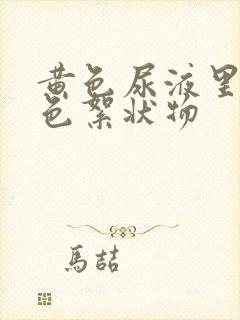 黄色尿液里
色絮状物
馬喆